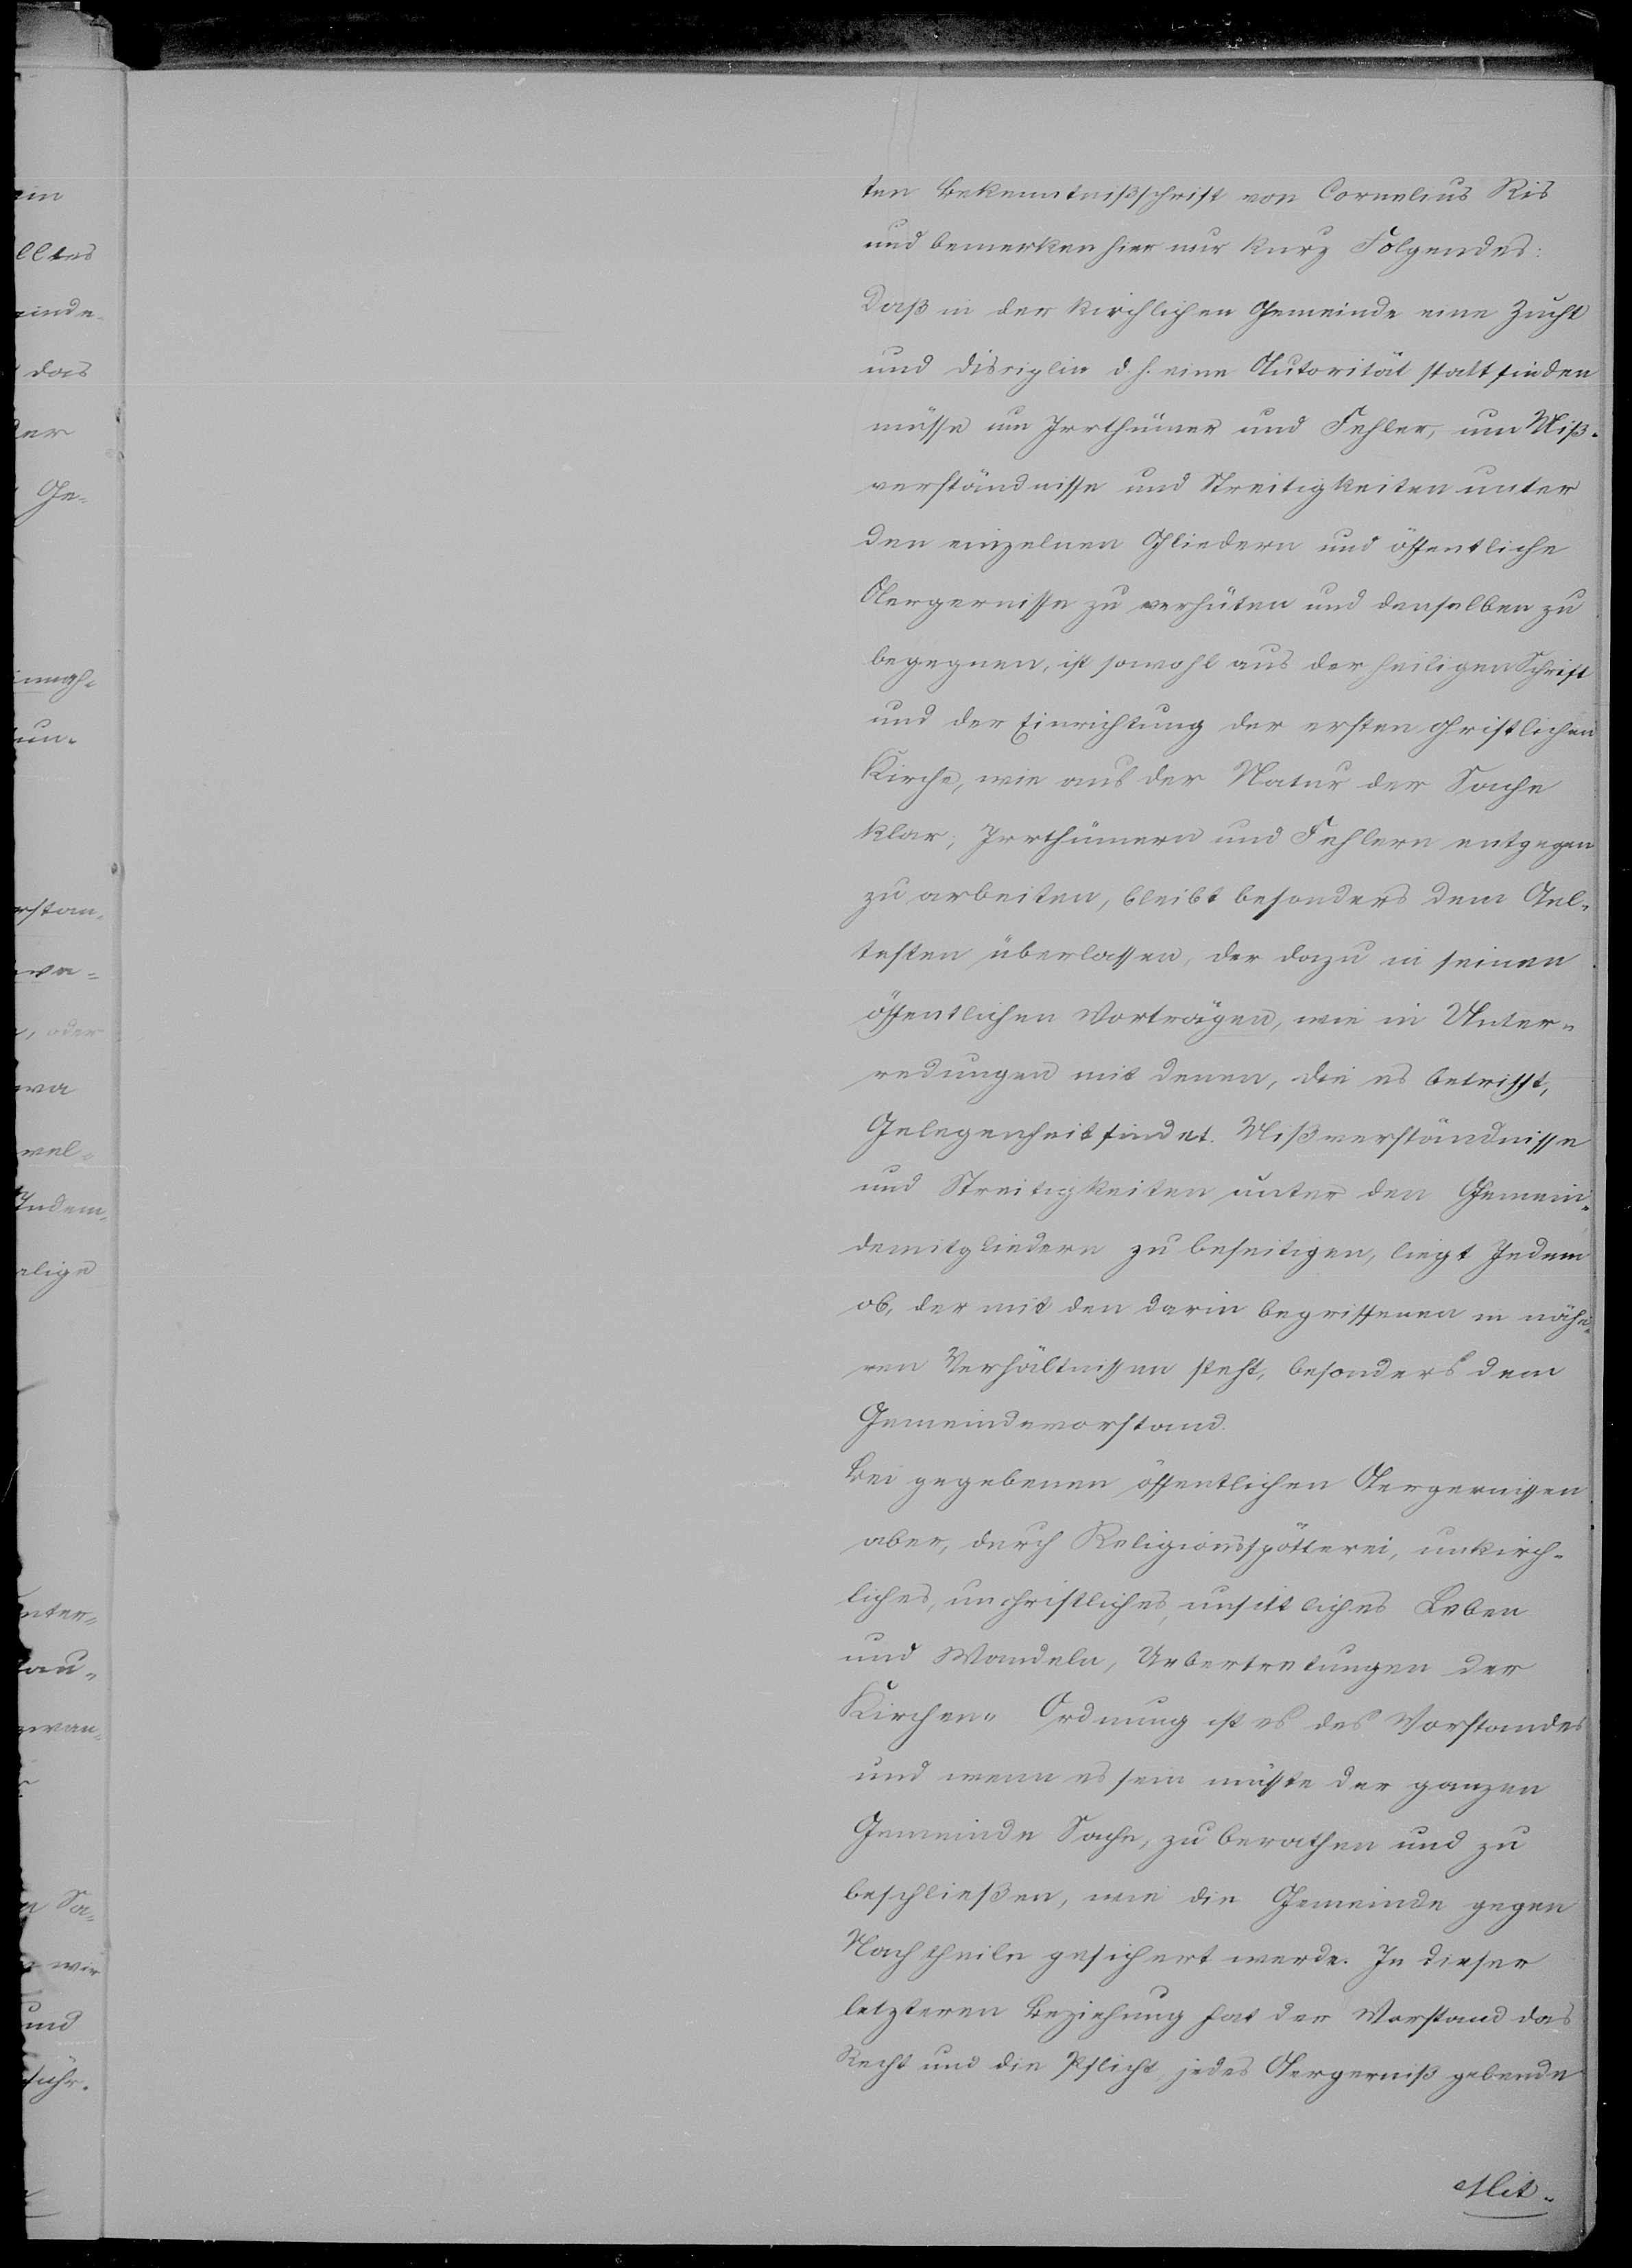 ten Bekenntnißschrift von Cornelius Ris
und bemerken hier nur kurz Folgendes:
Daß in der kirchlichen Gemeinde eine Zucht
und Disciplin d. h. eine Autorität stattfinden
müsse um Irrthümer und Fehler, um Miß-
verständnisse und Streitigkeiten unter
den einzelnen Gliedern und öffentliche
Aergernisse zu verhüten und denselben zu
begegnen, ist sowohl aus der heiligen Schrift
und der Einrichtung der ersten christlichen
Kirche, wie aus der Natur der Sache
klar; Irrthümern und Fehlern entgegen
zu arbeiten, bleibt besonders dem Ael-
testen überlassen, der dazu in seinen
öffentlichen Vorträgen, wie in Unter-
redungen mit denen, die es betrifft,
Gelegenheit findet. Mißverständnisse
und Streitigkeiten unter den Gemein-
demitgliedern zu beseitigen, liegt Jedem
ob, der mit den darin begriffenen in nähe-
ren Verhältnissen steht, besonders dem
Gemeindevorstand.
Bei gegebenen öffentlichen Aergernissen
aber, durch Religionsspötterei, unkirch-
liches, unchristliches, unsittliches Leben
und Wandeln, Uebertretungen der
Kirchen- Ordnung ist es des Vorstandes
und wenn es sein müßte der ganzen
Gemeinde Sache, zu berathen und zu
beschließen, wie die Gemeinde gegen
Nachtheile gesichert werde. In dieser
letzteren Beziehung hat der Vorstand das
Recht und die Pflicht, jedes Aergerniß gebende
Mit-